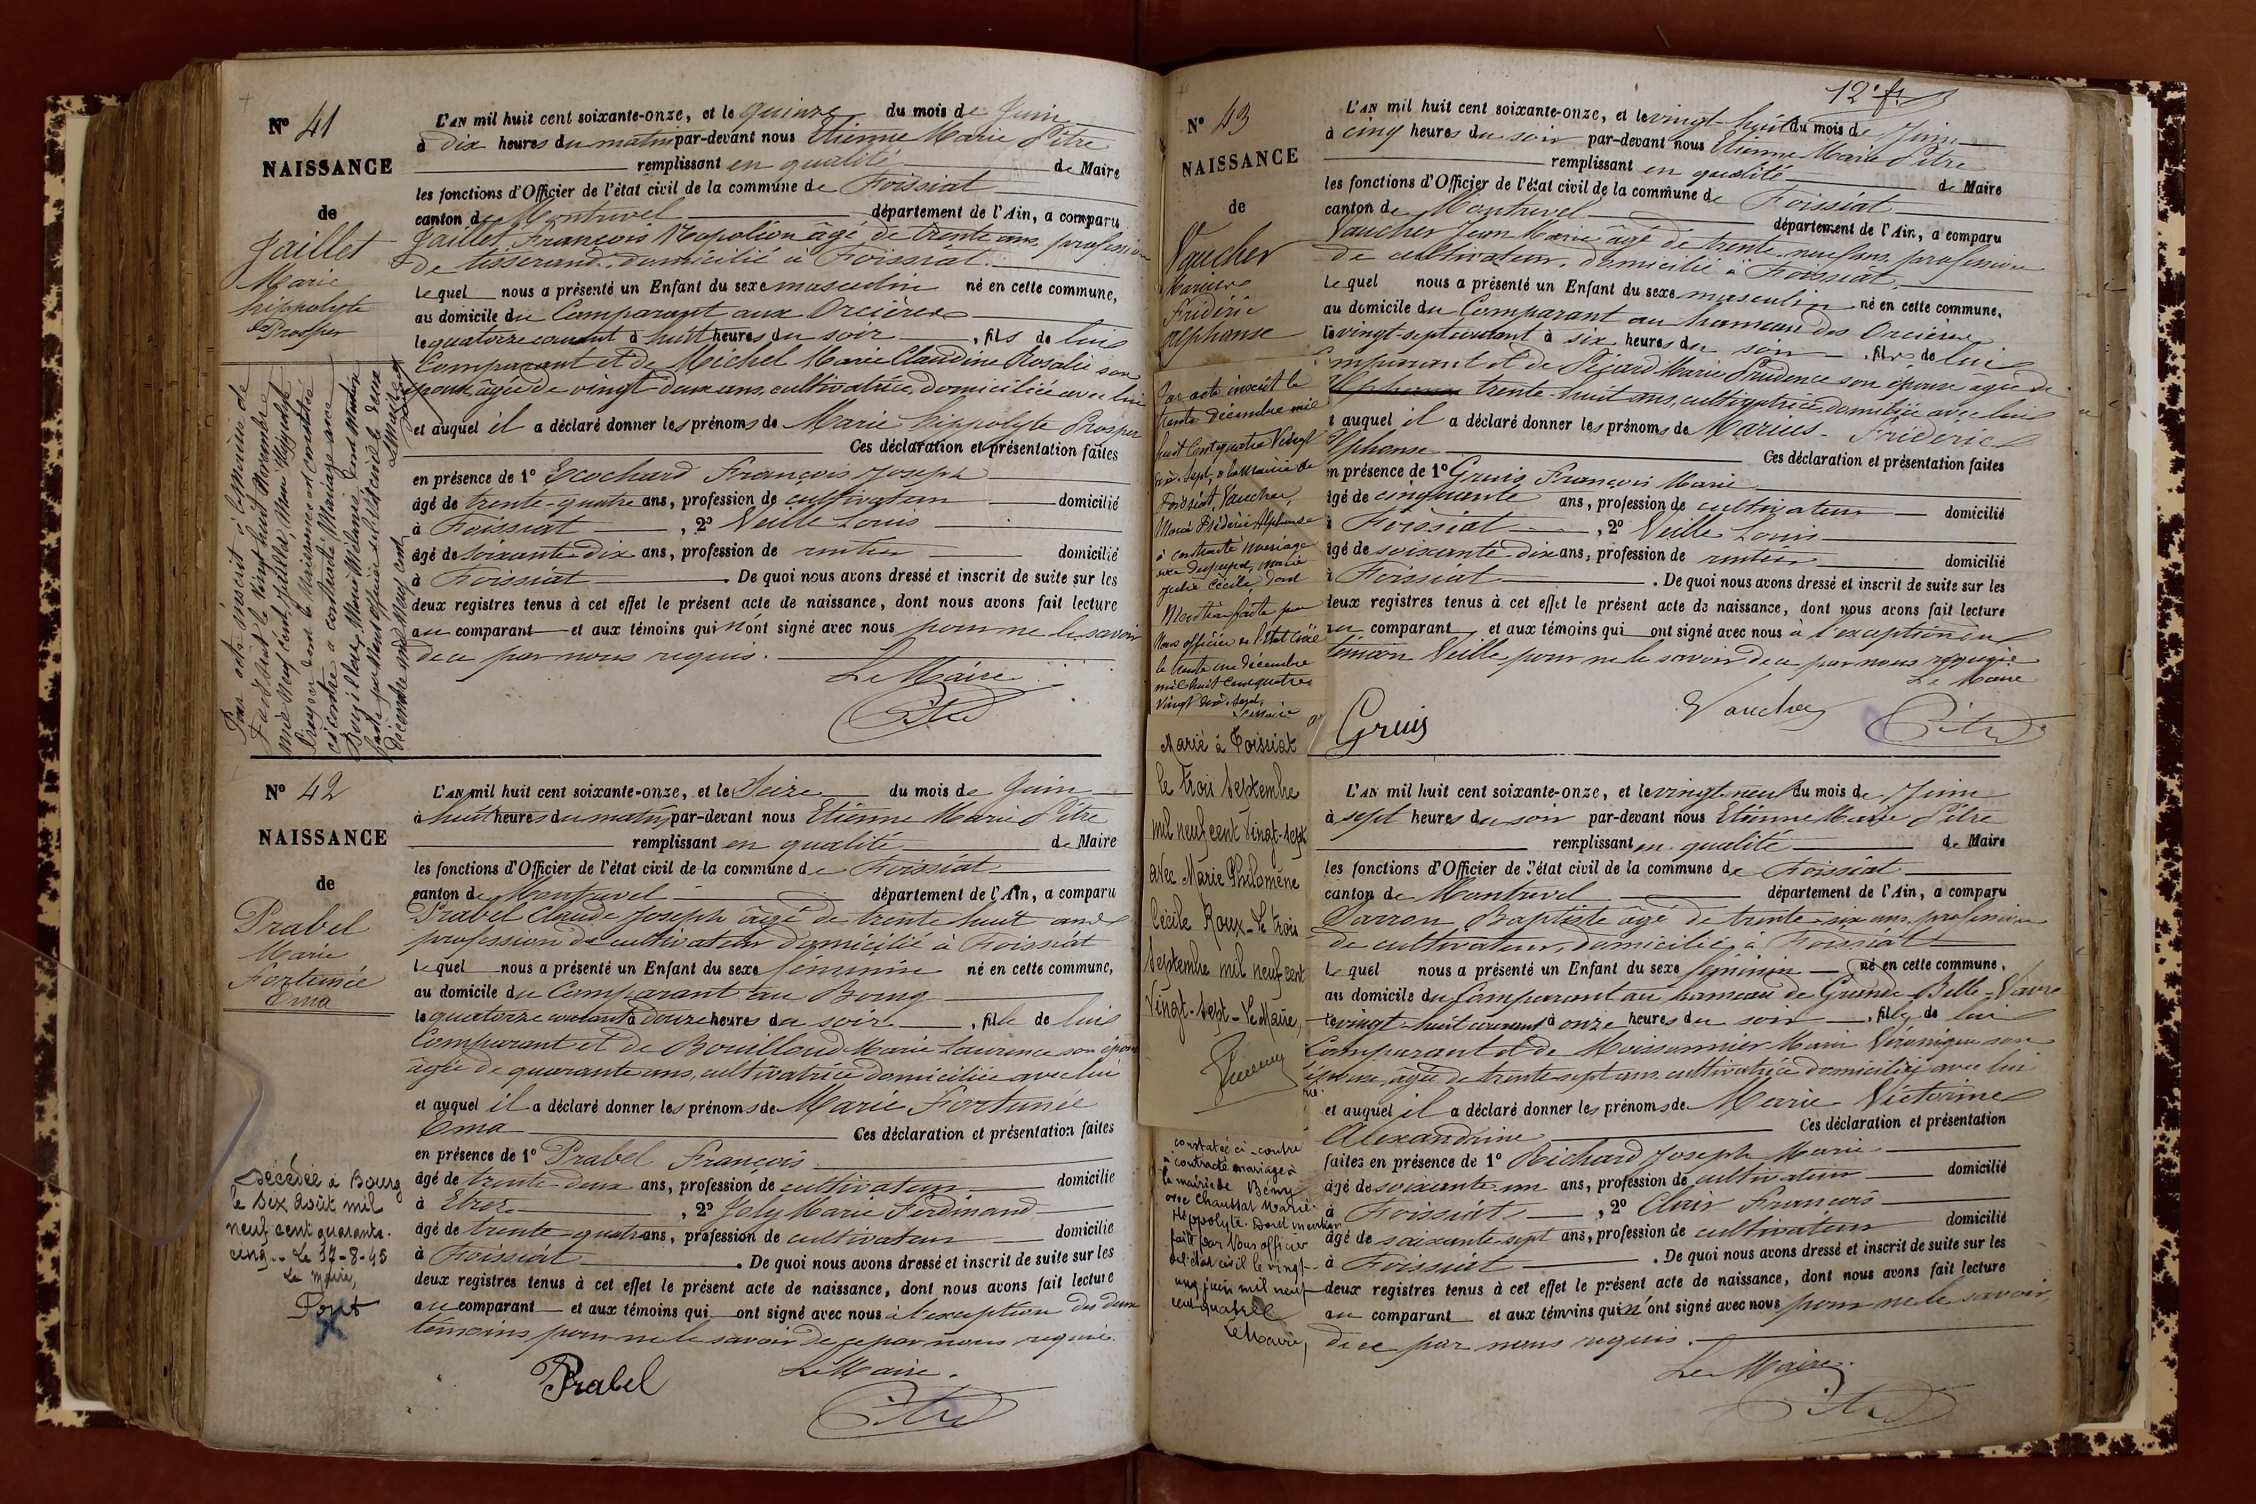 N° 41
NAISSANCE
de
Jaillet
Marie
hippolyte
Prosper
L'AN mil huit cent soixante-onze, et le quinze du mois de Juin
à dix heures du matin par-devant nous Etienne Marie Pitre
remplissant en qualité de Maire
les fonctions d'Officier de l'état civil de la commune de Foissiat
canton de Montrevel département de l'Ain, a comparu
Jaillet François Napoléon âgé de trente ans, profession
de tisserand, domicilié à Foissiat
lequel nous a présenté un Enfant du sexe masculin né en cette commune,
au domicile du Comparant aux Orcières
le quatorze courant à huit heures du soir, fils de lui
Comparant et de Michel Marie Claudine Rosalie son
épouse âgée de vingt deux ans, cultivatrice domiciliée avec lui
et auquel il a déclaré donner les prénoms de Marie hippolyte Prosper
Ces déclaration et présentation faites
en présence de 1° Ecochard François Joseph
âgé de trente-quatre ans, profession de cultivateur domicilié
à Foissiat, 2° Veille Louis
âgé de soixante dix ans, profession de rentier domicilié
à Foissiat. De quoi nous avons dressé et inscrit de suite sur les
deux registres tenus à cet effet le présent acte de naissance, dont nous avons fait lecture
au comparant et aux témoins qui n'ont signé avec nous pour ne le savoir
de ce par nous requis.
Le Maire
Pitre
Par acte inscrit à la mairie de
Foissiat le vingt huit Novembre
mil neuf cent, Jaillet, Marie Hippolyte
Prosper dont la Naissance est constatée
ci contre a contracté Mariage avec
Marie Mélanie, dont Mention
faite par Nous officier de l'état civil le deux
décembre mil neuf cent
Le Maire
N° 42
NAISSANCE
de
Prabel
Marie
Fortunée
Ema
L'AN mil huit cent soixante-onze, et le Seize du mois de Juin
à huit heures du matin, par-devant nous Etienne Marie Pitre
remplissant en qualité de Maire
les fonctions d'Officier de l'état civil de la commune de Foissiat
canton de Montrevel département de l'Ain, a comparu
Prabel Claude Joseph âgé de trente huit ans
profession de cultivateur domicilié à Foissiat
lequel nous a présenté un Enfant du sexe féminin né en cette commune,
au domicile du Comparant au Bourg
le quatorze courant à douze heures du soir, fille de lui
Comparant et de Bouilloud Marie Laurence son épouse
âgée de quarante ans, cultivatrice domiciliée avec lui
et auquel il a déclaré donner les prénoms de Marie Fortunée
Ema Ces déclaration et présentation faites
en présence de 1° Prabel François
âgé de trente-deux ans, profession de cultivateur domicilié
à Etrez, 2° Joly Marie Ferdinand
âgé de trente-quatre ans, profession de cultivateur domicilié
à Foissiat. De quoi nous avons dressé et inscrit de suite sur les
deux registres tenus à cet effet le présent acte de naissance, dont nous avons fait lecture
au comparant et aux témoins qui ont signé avec nous à l'exception des deux
témoins pour ne le savoir de ce par nous requis.
Prabel
Le Maire.
Pitre
Décédée à Bourg
le six Août mil
neuf cent quarante-
cinq. Le 17-8-45
Le Maire,
Pont
12e f.
N° 43
NAISSANCE
de
Vaucher
Marius
Fridéric
alphonse
L'AN mil huit cent soixante-onze, et le vingt-huit du mois de Juin
à cinq heures du soir par-devant nous Etienne Marie Pitre
remplissant en qualité de Maire
les fonctions d'Officier de l'état civil de la commune de Foissiat
canton de Montrevel département de l'Ain, a comparu
Vaucher Jean Marie âgé de trente-neuf ans, profession
de cultivateur, domicilié à Foissiat
lequel nous a présenté un Enfant du sexe masculin né en cette commune,
au domicile du Comparant au hameau des Orcières
le vingt-sept courant à six heures du soir, fils de lui
Comparant et de Picard Marie Prudence son épouse âgée de
trente-huit ans, cultivatrice domiciliée avec lui
et auquel il a déclaré donner les prénoms de Marius Fridéric
Alphonse Ces déclaration et présentation faites
en présence de 1° Gruis François Marie
âgé de cinquante ans, profession de cultivateur domicilié
à Foissiat, 2° Veille Louis
âgé de soixante dix ans, profession de rentier domicilié
à Foissiat. De quoi nous avons dressé et inscrit de suite sur les
deux registres tenus à cet effet le présent acte de naissance, dont nous avons fait lecture
au comparant et aux témoins qui ont signé avec nous à l'exception du
témoin Veille pour ne le savoir de ce par nous requis.
Le Maire
Gruis
Vaucher
Pitre
Par acte inscrit le
trente décembre mil
huit Cent quatre Vingt
dix-Sept, à la Mairie de
Foissiat, Vaucher,
Marius Frédéric Alphonse
a contracté mariage
avec Marie
Julie Cécile, dont
Mention faite par
Nous officier de l'Etat Civil
le trente un décembre
mil huit Cent quatre
Vingt dix-Sept,
Le Maire
Marié à Foissiat
le trois Septembre
mil neuf cent vingt-sept
avec Marie Philomène
Cécile Roux. Le trois
Septembre mil neuf cent
Vingt-sept. Le Maire,
constatée ci-contre
a contracté mariage à
la mairie de Bény
avec Chaussat Marie
Hippolyte. Dont mention
faite par Nous officier
de l'état civil le vingt-
un, juin mil neuf
cent
Le Maire,
L'AN mil huit cent soixante-onze, et le vingt-neuf du mois de Juin
à sept heures du soir par-devant nous Etienne Marie Pitre
remplissant en qualité de Maire
les fonctions d'Officier de l'état civil de la commune de Foissiat
canton de Montrevel département de l'Ain, a comparu
Darron Baptiste âgé de trente-six ans, profession
de cultivateur, domicilié à Foissiat
lequel nous a présenté un Enfant du sexe féminin né en cette commune,
au domicile du Comparant au hameau de Grande Belle-Vavre
le vingt-huit courant à onze heures du soir, fille de lui
Comparant et de Moissonnier Marie Véronique son
épouse, âgée de trente-sept ans, cultivatrice domiciliée avec lui
et auquel il a déclaré donner les prénoms de Marie Victorine
Alexandrine Ces déclaration et présentation
faites en présence de 1° Richard Joseph Marie
âgé de soixante-un ans, profession de cultivateur domicilié
à Foissiat, 2° Clair François
âgé de soixante-sept ans, profession de cultivateur domicilié
à Foissiat. De quoi nous avons dressé et inscrit de suite sur les
deux registres tenus à cet effet le présent acte de naissance, dont nous avons fait lecture
au comparant et aux témoins qui n'ont signé avec nous pour ne le savoir
de ce par nous requis.
Le Maire.
Pitre